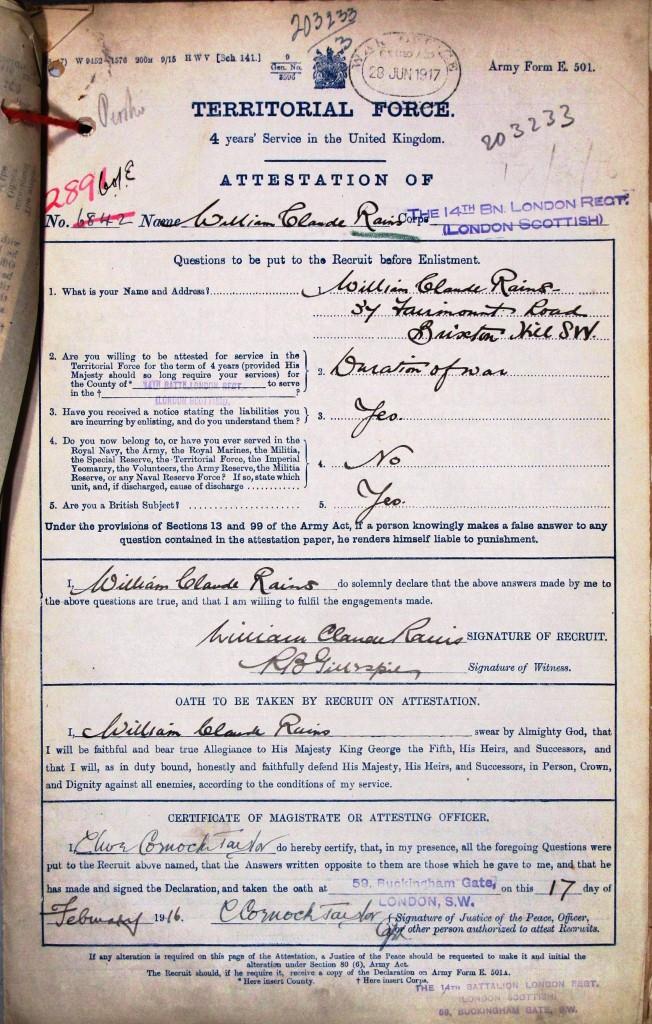 203233
W 9452—1576 200m 9/15 H W V [Sch. 141.]
9
Gen. No.
3
WAR OFFICE
28 JUN 1917
Army Form E. 501.
TERRITORIAL FORCE.
4 years' Service in the United Kingdom.
203233
ATTESTATION OF
289
No. 6842 Name William Claude Rains Corps THE 14TH BN. LONDON REGT.
(LONDON SCOTTISH)
Questions to be put to the Recruit before Enlistment.
1. What is your Name and Address? 1. William Claude Rains
37 Fairmount Road
Brixton Hill S.W.
2. Are you willing to be attested for service in the
Territorial Force for the term of 4 years (provided His
Majesty should so long require your services) for
the County of* 14TH BATTN. LONDON REGT. to serve
in the † (LONDON SCOTTISH) ?
2. Duration of war
3. Have you received a notice stating the liabilities you
are incurring by enlisting, and do you understand them?
3. Yes.
4. Do you now belong to, or have you ever served in the
Royal Navy, the Army, the Royal Marines, the Militia,
the Special Reserve, the Territorial Force, the Imperial
Yeomanry, the Volunteers, the Army Reserve, the Militia
Reserve, or any Naval Reserve Force? If so, state which
unit, and, if discharged, cause of discharge
4. No
5. Are you a British Subject? 5. Yes.
Under the provisions of Sections 13 and 99 of the Army Act, if a person knowingly makes a false answer to any
question contained in the attestation paper, he renders himself liable to punishment.
I, William Claude Rains do solemnly declare that the above answers made by me to
the above questions are true, and that I am willing to fulfil the engagements made.
William Claude Rains SIGNATURE OF RECRUIT.
R B Gillespie Signature of Witness.
OATH TO BE TAKEN BY RECRUIT ON ATTESTATION.
I, William Claude Rains swear by Almighty God, that
I will be faithful and bear true Allegiance to His Majesty King George the Fifth, His Heirs, and Successors, and
that I will, as in duty bound, honestly and faithfully defend His Majesty, His Heirs, and Successors, in Person, Crown,
and Dignity against all enemies, according to the conditions of my service.
CERTIFICATE OF MAGISTRATE OR ATTESTING OFFICER.
I, Clive Cornock Taylor do hereby certify, that, in my presence, all the foregoing Questions were
put to the Recruit above named, that the Answers written opposite to them are those which he gave to me, and that he
has made and signed the Declaration, and taken the oath at 59, Buckingham Gate, on this 17 day of
LONDON, S.W.
February 1916. C Cornock Taylor Signature of Justice of the Peace, Officer,
or other person authorized to attest Recruits.
If any alteration is required on this page of the Attestation, a Justice of the Peace should be requested to make it and initial the
alteration under Section 80 (6), Army Act.
The Recruit should, if he require it, receive a copy of the Declaration on Army Form E. 501A.
* Here insert County. † Here insert Corps.
THE 14TH BATTALION LONDON REGT.
(LONDON SCOTTISH)
59, BUCKINGHAM GATE, S.W.